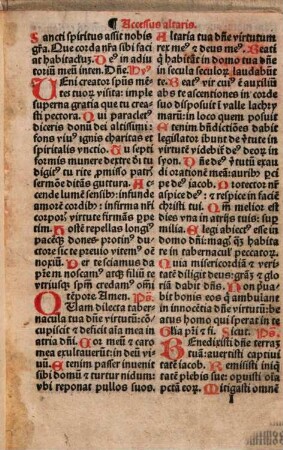 ¶ Accessus altaris.
Sancti spiritus assit nobis
gra. Que corda nrã sibi faci
at habitactũ. Deus in ad
iutoriũ meũ inten. Dñe. Hy⁹
Veni creator spũs mẽ
tes tuorũ visita: imple
superna gratia que tu crea
sti pectora. Qui paracle⁹
diceris donũ dei altissimi:
fons viu⁹ ignis charitas et
spiritalis vnctio. Tu septi
formis munere dextre dĩ tu
digit⁹. tu rite ꝓmisso patr̃.
sermõe ditãs guttura. Ac
cende lumẽ sensib⁹: infunde
amorẽ cordib⁹: infirma nrĩ
corpor̃. virtute firmãs ꝑpe
tim. Hostẽ repellas longi⁹
pacẽqꝫ dones protin⁹ du
ctore sic te preuio vitem⁹ oẽ
noxiũ. Per te sciam⁹ da
prẽm noscam⁹ atqꝫ filiũ te
vtriusqꝫ spm̃ credam⁹ om̃i
tẽpore. Amen. Ps.
Quam dilecta taber-
nacula tua dñe virtutũ: cõ
cupiscit et deficit aĩa mea in
atria dñi. Cor meũ et caro
mea exultauerũt: in deũ vi
uũ. Etenim passer inuenit
sibi domũ et turtur nidum:
vbi reponat pullos suos.
Altaria tua dñe virtutum
rex me⁹ et deus me⁹. Beati
q̃ habitãt in domo tua dñe
in secula seculoꝝ laudabũt
te. Beat⁹ vir cui⁹ ẽ auxiliũ
abs te ascentiones in corde
suo disposuit ĩ valle lachry
marũ: in loco quem posuit
Etenim bñdictiões dabit
legislator ibunt de ṽtute in
virtutẽ videbit̃ de⁹ deoꝝ in
syon. Dñe de⁹ ṽtutũ exau
di orationẽ meã: aurib⁹ ꝑci
pe de⁹ iacob. Protector nr̃
aspice de⁹: et respice in faciẽ
christi tui. Qm̃ melior est
dies vna in atrijs tuis: suꝑ
milia. Elegi abiect⁹ esse in
domo dñi: magꝫ q̃ habita
re in tabernacul̃ peccatorũ.
Quia misericordiã et veritã-
tẽ diligit deus: gr̃az et gl̃oriã
dabit dñs. Non pua-
bit bonis eos q̃ ambulant
in innocẽtia dñe virtutũ: be
atus homo qui sperat in te
Gl̃ia pr̃i et fi. Sicut. Ps.
Benedixisti dñe terrã
tuã: auertisti captiui
tatẽ iacob. Remisisti iniqͥ
tatem plebis tue: operuisti oĩa
pctã eoꝝ. Mitigasti omnẽ